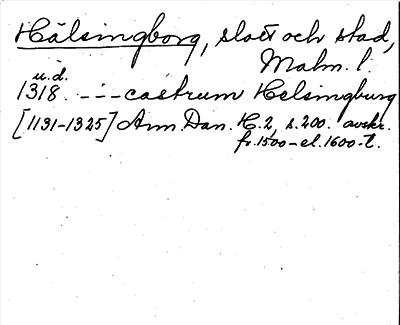 Hälsingborg, slott och stad,
Malm. l.
u.d.
1318. --- castrum Helsingburg
[1131-1325] Ann. Dan. H.2, s.200. avskr.
fr. 1500- el. 1600-t.